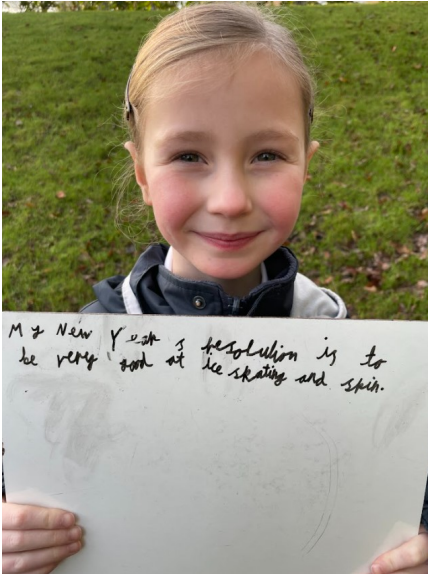 My New Year s resolution is to
be very good at ice skating and spin.